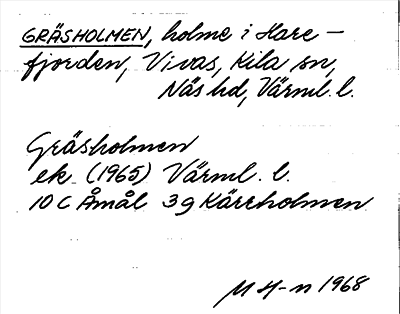 GRÄSHOLMEN, holme i Hare-
fjorden, Vivas, Kila sn,
Näs hd, Värml. l.
Gräsholmen
ek (1965) Värml. l.
10 C Åmål 3 g Kärrholmen
M H-n 1968